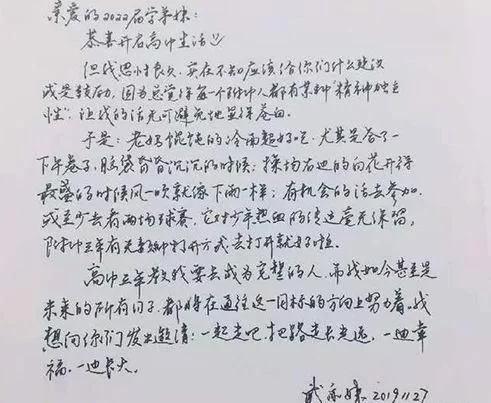 亲爱的2022届学弟妹：
恭喜开启高中生活
但我思忖良久，实在不知应该给你们什么建议
或是鼓励。因为总觉得每一个附中人都有某种“精神独立
性”，让我的话无可避免地显得苍白。
于是：老妈馄饨的冷面超好吃，尤其是答了一
下午卷子，脑袋昏昏沉沉的时候；操场右边的白花开得
最盛的时候风一吹就像下雨一样；有机会的话去参加，
或至少去看两场球赛，它对少年热血的传达毫无保留，
附中三年有无数种打开方式，去打开就好啦。
高中三年教我要去成为完整的人，而我如今甚至是
未来的所有日子，都将在通往这一目标的方向上努力着。我
想向你们发出邀请：一起走吧，把路走长走远，一边幸
福，一边长大。
2019.11.27